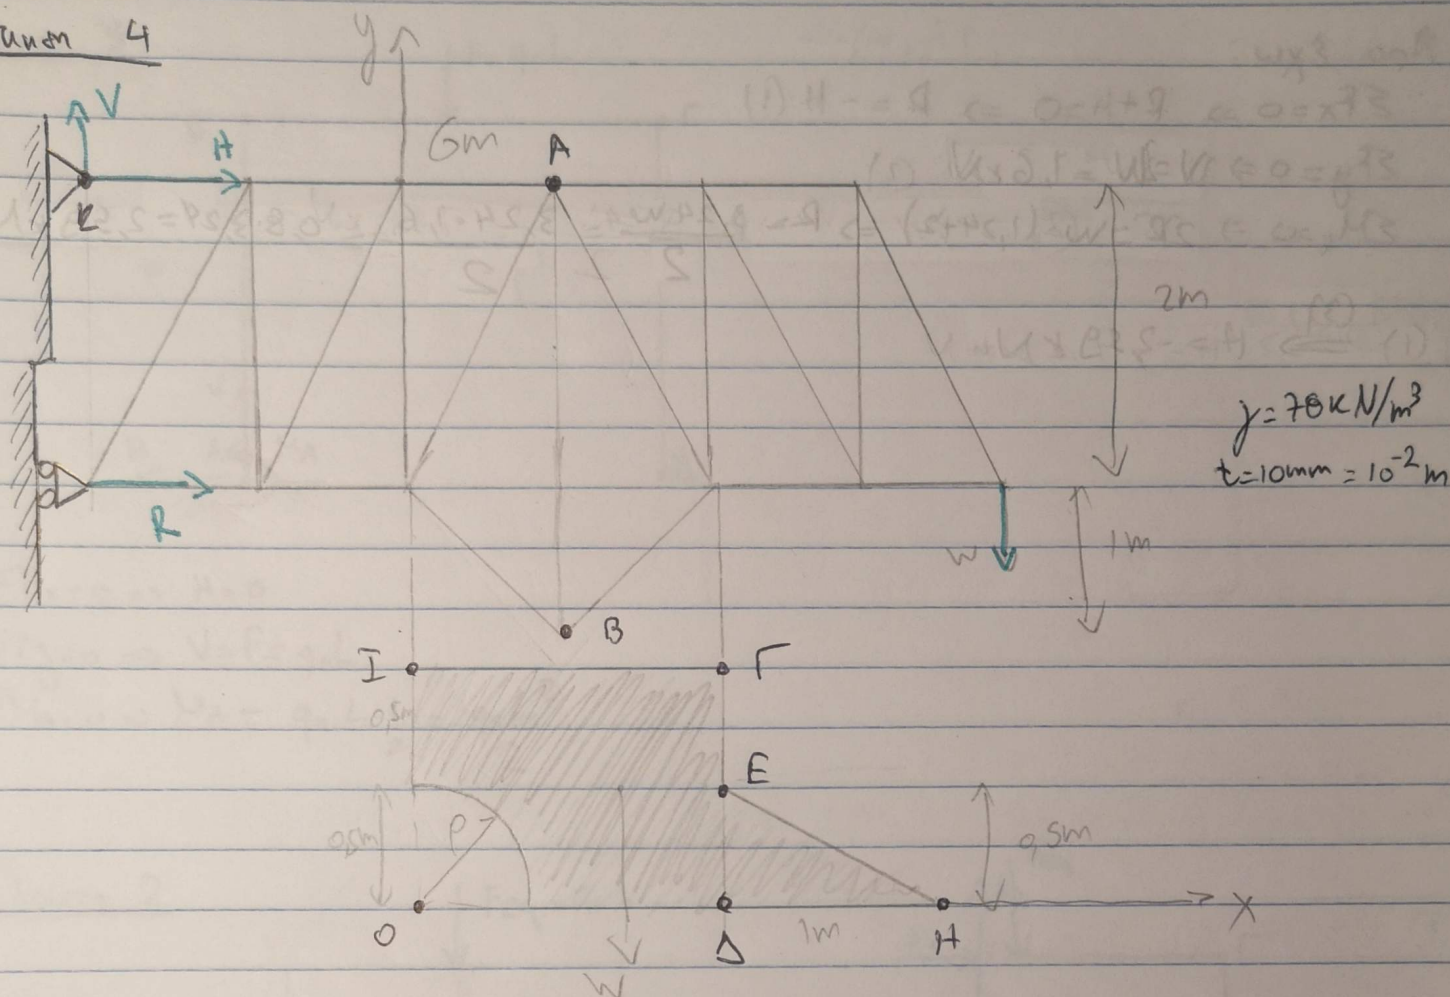 4
y
V
H
6m
A
K
2m
γ=78kN/m³
t=10mm=10⁻²m
R
W
1m
B
I
Γ
0,5m
E
0,5m
ρ
0,5m
O
Δ
1m
H
x
W